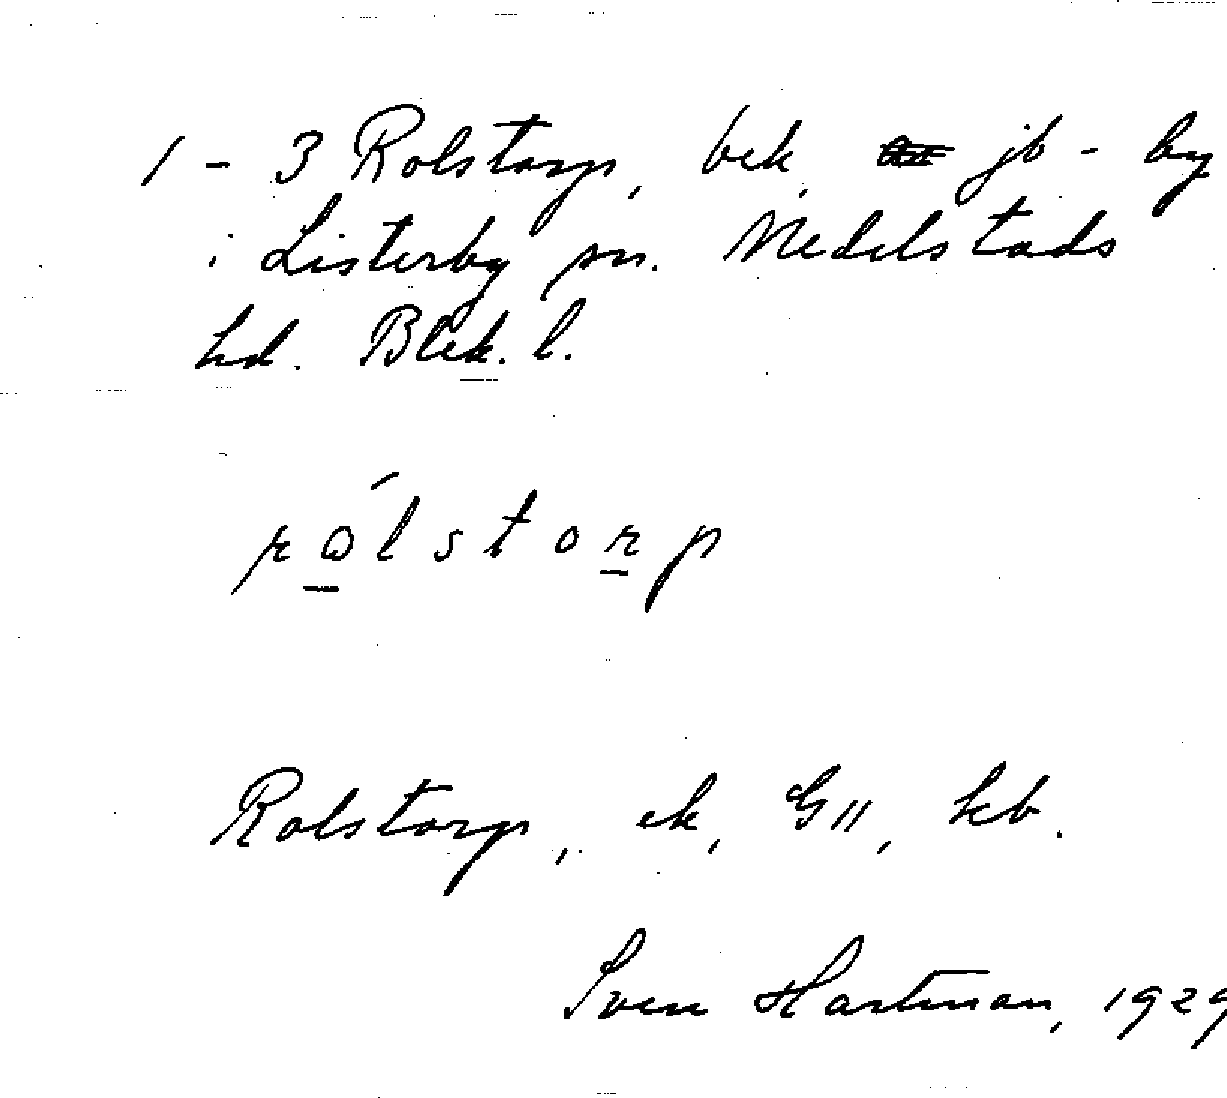 1 - 3 Rolstorp, bek, jb - by
i Listerby sn. Medelstads
hd. Blek. l.
rólstorp
Rolstorp, ek, G11, kb.
Sven Hartman, 1929